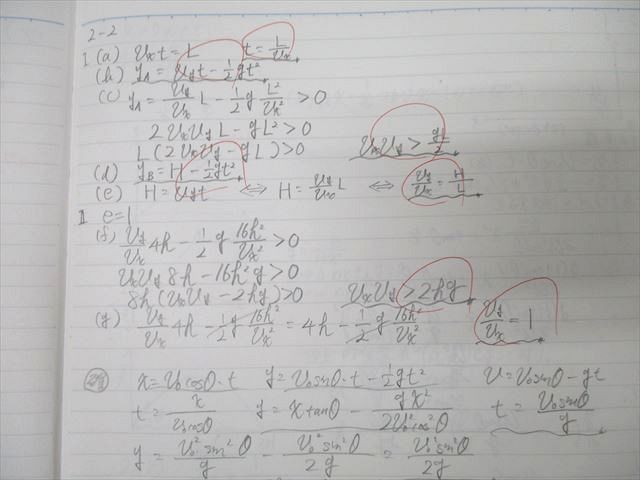 2-2
I (a) Vxt = L  t = L/Vx
(b) yA = Vyt - 1/2 gt²
(c) yA = Vy/Vx L - 1/2 g L²/Vx² > 0
2VxVyL - gL² > 0
L(2VxVy - gL) > 0  VxVy > gL/2
(d) yB = H - 1/2 gt²
(e) H = Vyt ⇔ H = Vy/Vx L ⇔ Vy/Vx = H/L
II e = 1
(f) Vy/Vx 4h - 1/2 g 16h²/Vx² > 0
VxVy 8h - 16h²g > 0
8h(VxVy - 2hg) > 0  VxVy > 2hg
(g) Vy/Vx 4h - 1/2 g 16h²/Vx² = 4h - 1/2 g 16h²/Vx²  Vy/Vx = 1
x = V₀cosθ·t  y = V₀sinθ·t - 1/2 gt²  V = V₀sinθ - gt
t = x/V₀cosθ  y = xtanθ - gx²/2V₀²cos²θ  t = V₀sinθ/g
y = V₀²sin²θ/g - V₀²sin²θ/2g = V₀²sin²θ/2g